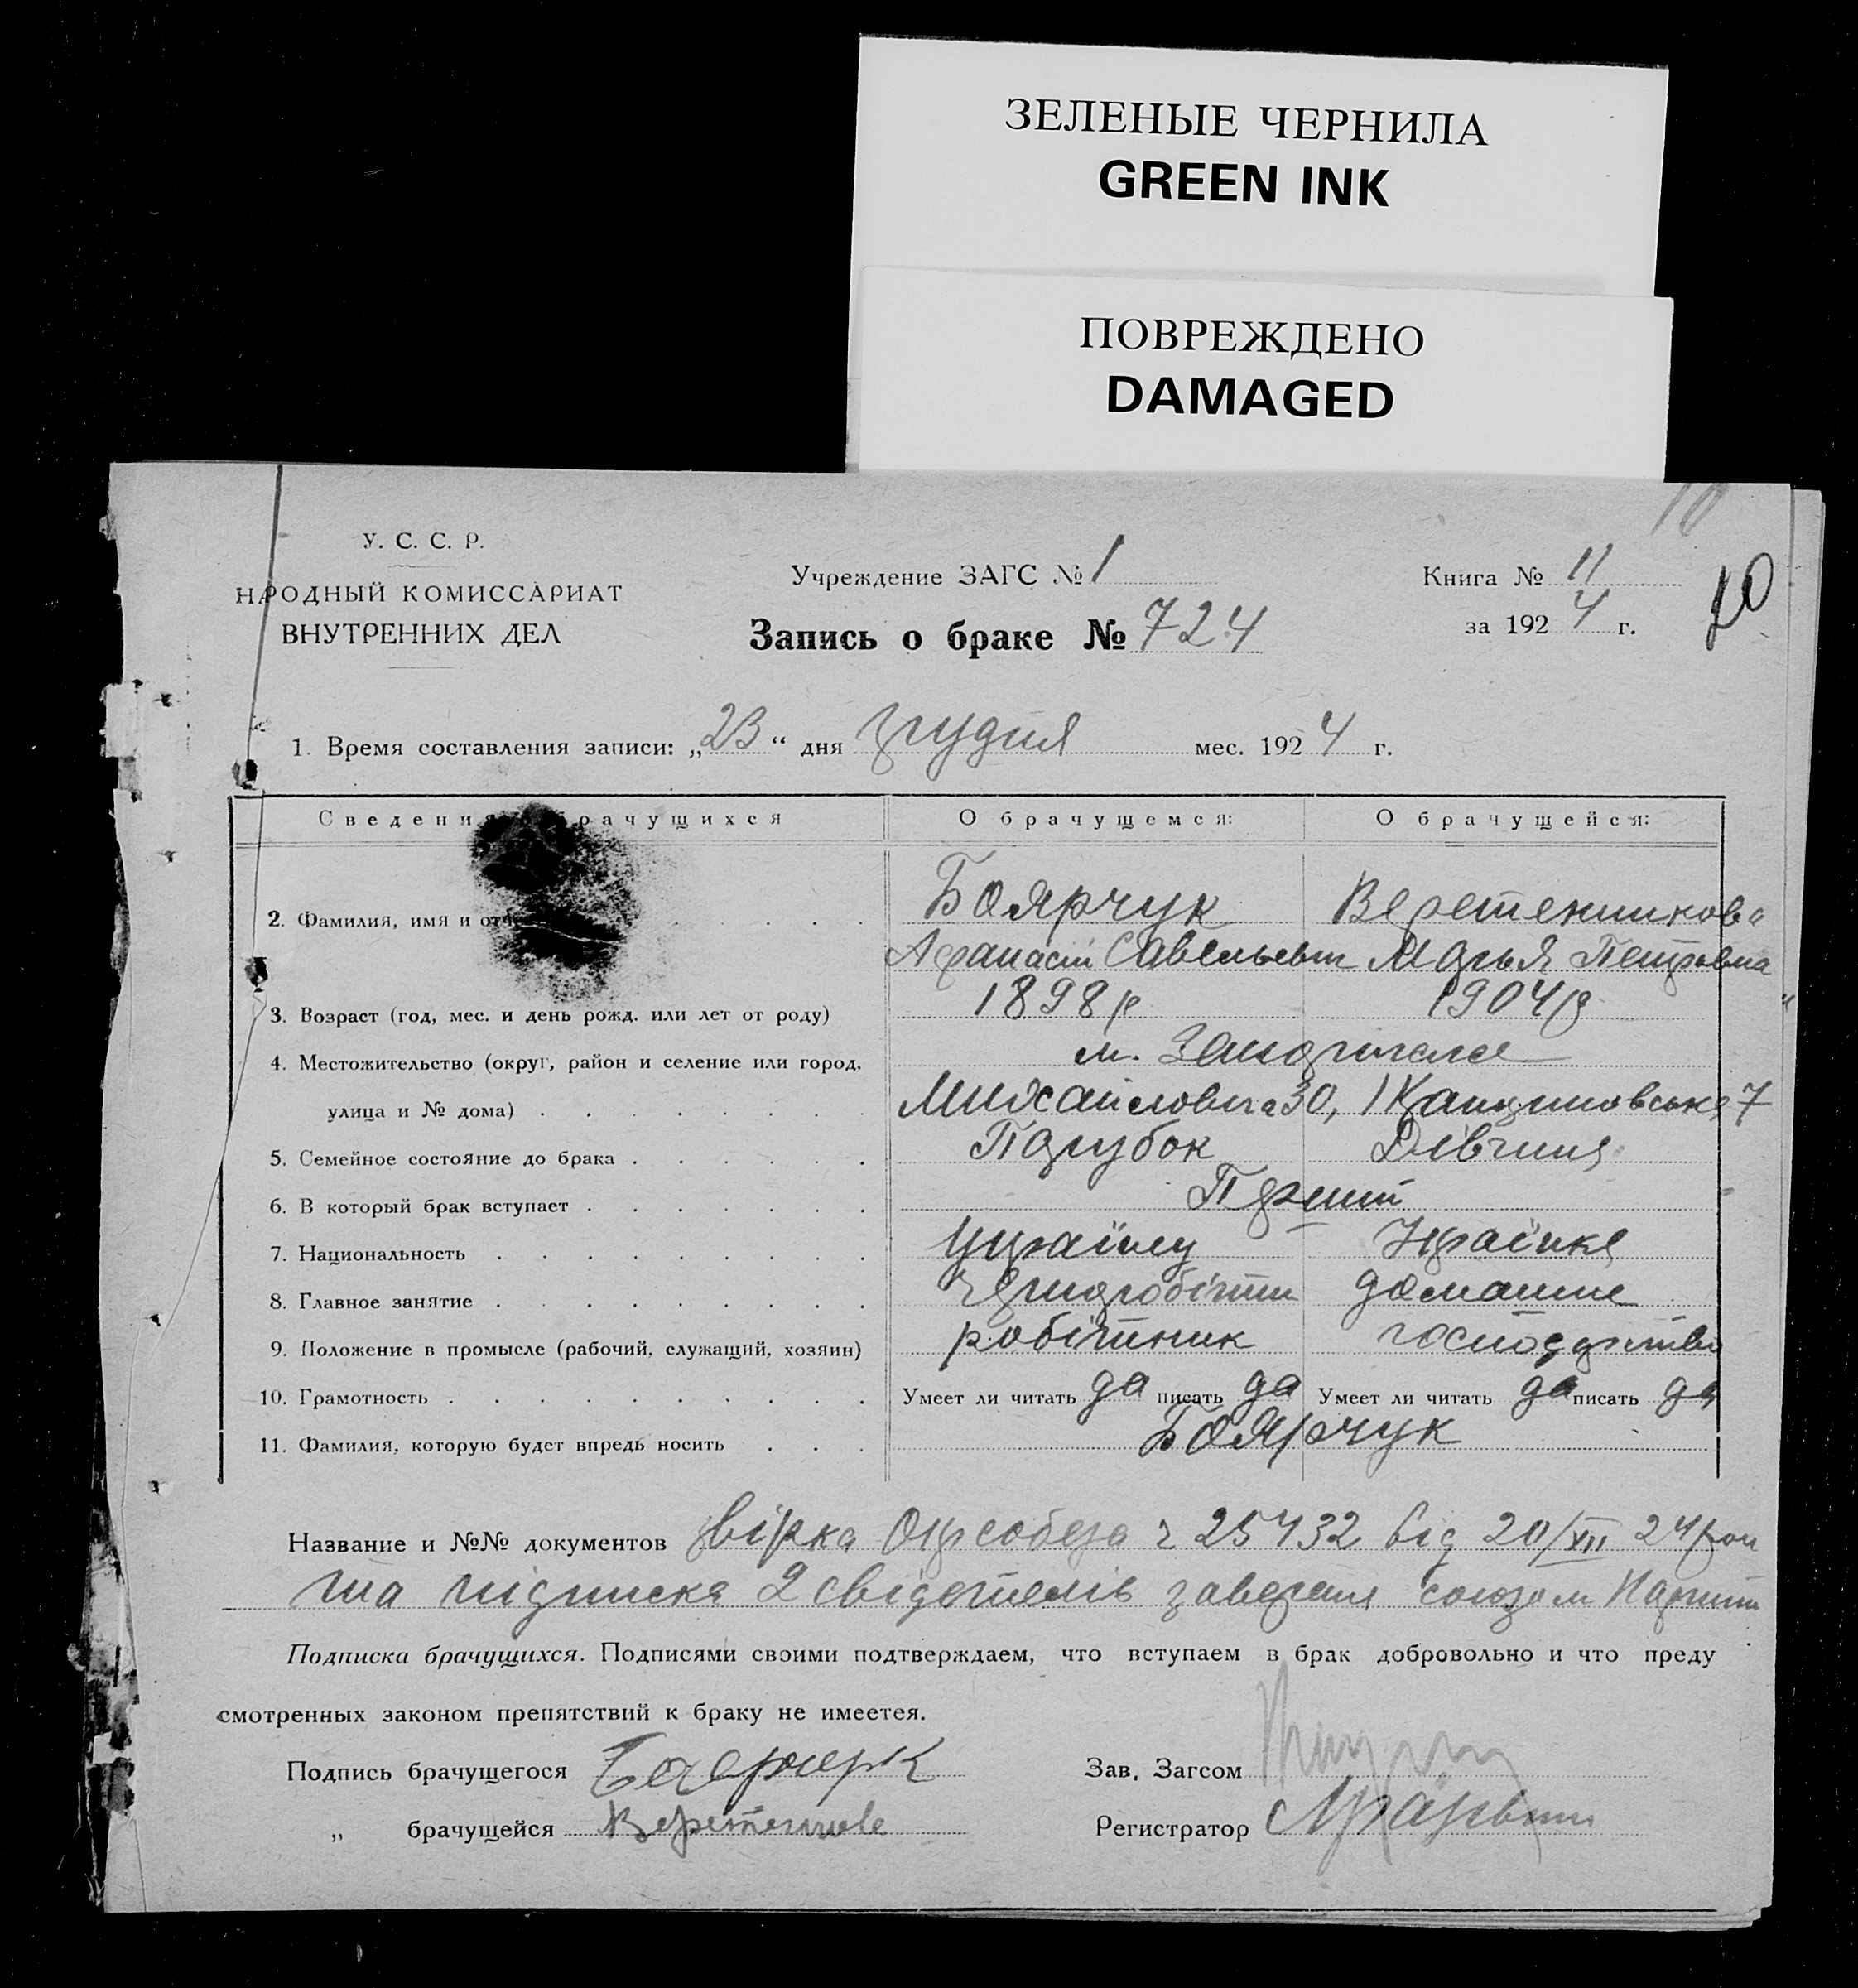 ЗЕЛЕНЫЕ ЧЕРНИЛА
GREEN INK
ПОВРЕЖДЕНО
DAMAGED
10
У. С. С. Р.
НАРОДНЫЙ КОМИССАРИАТ
ВНУТРЕННИХ ДЕЛ
Учреждение ЗАГС № 1
Запись о браке № 724
Книга № 11
за 1924 г.
1. Время составления записи: „23“ дня грудня мес. 1924 г.
О брачущемся: О брачущейся:
2. Фамилия, имя и Боярчук Веретенникова
Афанасій Савельевич Марья Петровна
3. Возраст (год, мес. и день рожд. или лет от роду) 1898 р 1904 р
4. Местожительство (округ, район и селение или город, м.
улица и № дома) 30, 7
5. Семейное состояние до брака Парубок Дівчина
6. В который брак вступает Перший
7. Национальность Українец Українка
8. Главное занятие домашне
9. Положение в промысле (рабочий, служащий, хозяин) робітник господарство
10. Грамотность Умеет ли читать да писать да Умеет ли читать да писать да
11. Фамилия, которую будет впредь носить Боярчук
Название и №№ документов 25432 від 20/XII 24
та підписка 2 свідетелів союзом
Подписка брачущихся. Подписями своими подтверждаем, что вступаем в брак добровольно и что преду
смотренных законом препятствий к браку не имеется.
Подпись брачущегося
Зав. Загсом
„ брачущейся
Регистратор